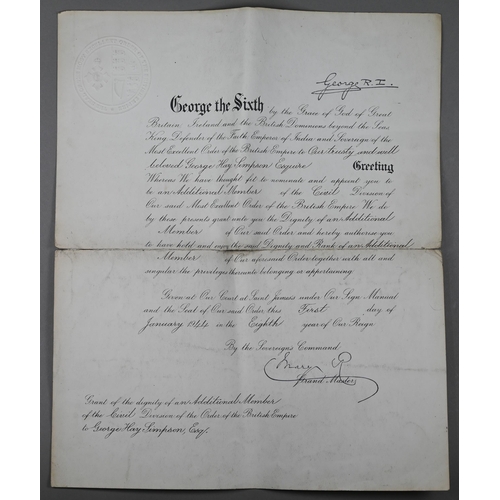 George R.I.
George the Sixth by the Grace of God of Great
Britain Ireland and the British Dominions beyond the Seas
King Defender of the Faith Emperor of India and Sovereign of the
Most Excellent Order of the British Empire to Our trusty and well
beloved George Hay Simpson Esquire Greeting
Whereas We have thought fit to nominate and appoint you to
be an Additional Member of the Civil Division of
Our said Most Excellent Order of the British Empire We do
by these presents grant unto you the Dignity of an Additional
Member of Our said Order and hereby authorise you
to have hold and enjoy the said Dignity and Rank of an Additional
Member of Our aforesaid Order together with all and
singular the privileges thereunto belonging or appertaining
Given at Our Court at Saint James's under Our Sign Manual
and the Seal of Our said Order this First day of
January 1944 in the Eighth year of Our Reign
By the Sovereign's Command
Mary R
Grand Master
Grant of the dignity of an Additional Member
of the Civil Division of the Order of the British Empire
to George Hay Simpson, Esq.